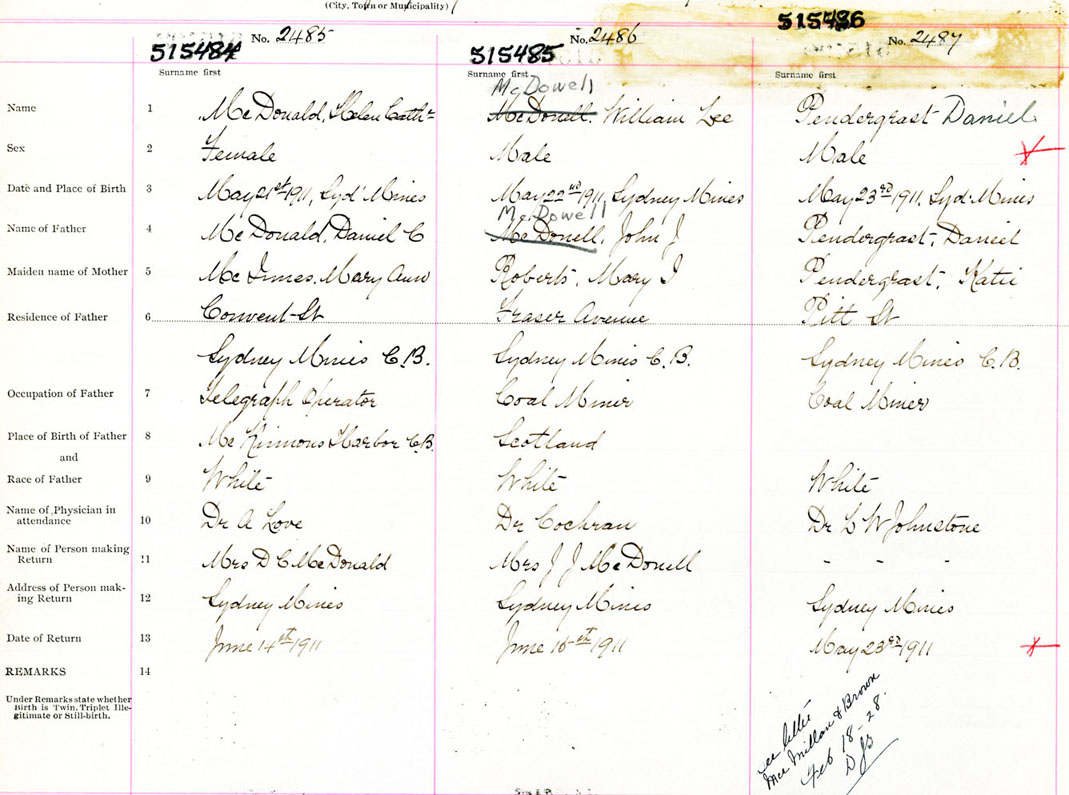 (City, Town or Municipality)
515484 No. 2485 515485 No. 2486 515486 No. 2487
Surname first Surname first Surname first
McDowell
Name 1 McDonald, Helen Cathr McDonell. William Lee Pendergrast Daniel
Sex 2 Female Male Male
Date and Place of Birth 3 May 21st 1911, Syd' Mines May 22nd 1911, Sydney Mines May 23rd 1911, Syd. Mines
McDowell
Name of Father 4 McDonald, Daniel C McDonell, John J Pendergrast, Daniel
Maiden name of Mother 5 McInnes. Mary Ann Roberts, Mary I Pendergrast, Katie
Residence of Father 6 Convent St Fraser Avenue Pitt St
Sydney Mines C.B. Sydney Mines C.B. Sydney Mines C.B.
Occupation of Father 7 Telegraph Operator Coal Miner Coal Miner
Place of Birth of Father 8 McKinnons Harbor C.B. Scotland
and
Race of Father 9 White White White
Name of Physician in
attendance 10 Dr A Love Dr Cochran Dr L W Johnstone
Name of Person making
Return 11 Mrs D C McDonald Mrs J J McDonell - - -
Address of Person mak-
ing Return 12 Sydney Mines Sydney Mines Sydney Mines
Date of Return 13 June 14th 1911 June 16th 1911 May 23rd 1911
REMARKS 14
Under Remarks state whether
Birth is Twin, Triplet Ille-
gitimate or Still-birth.
see letter
MacMillan & Brown
Feb 18-28.